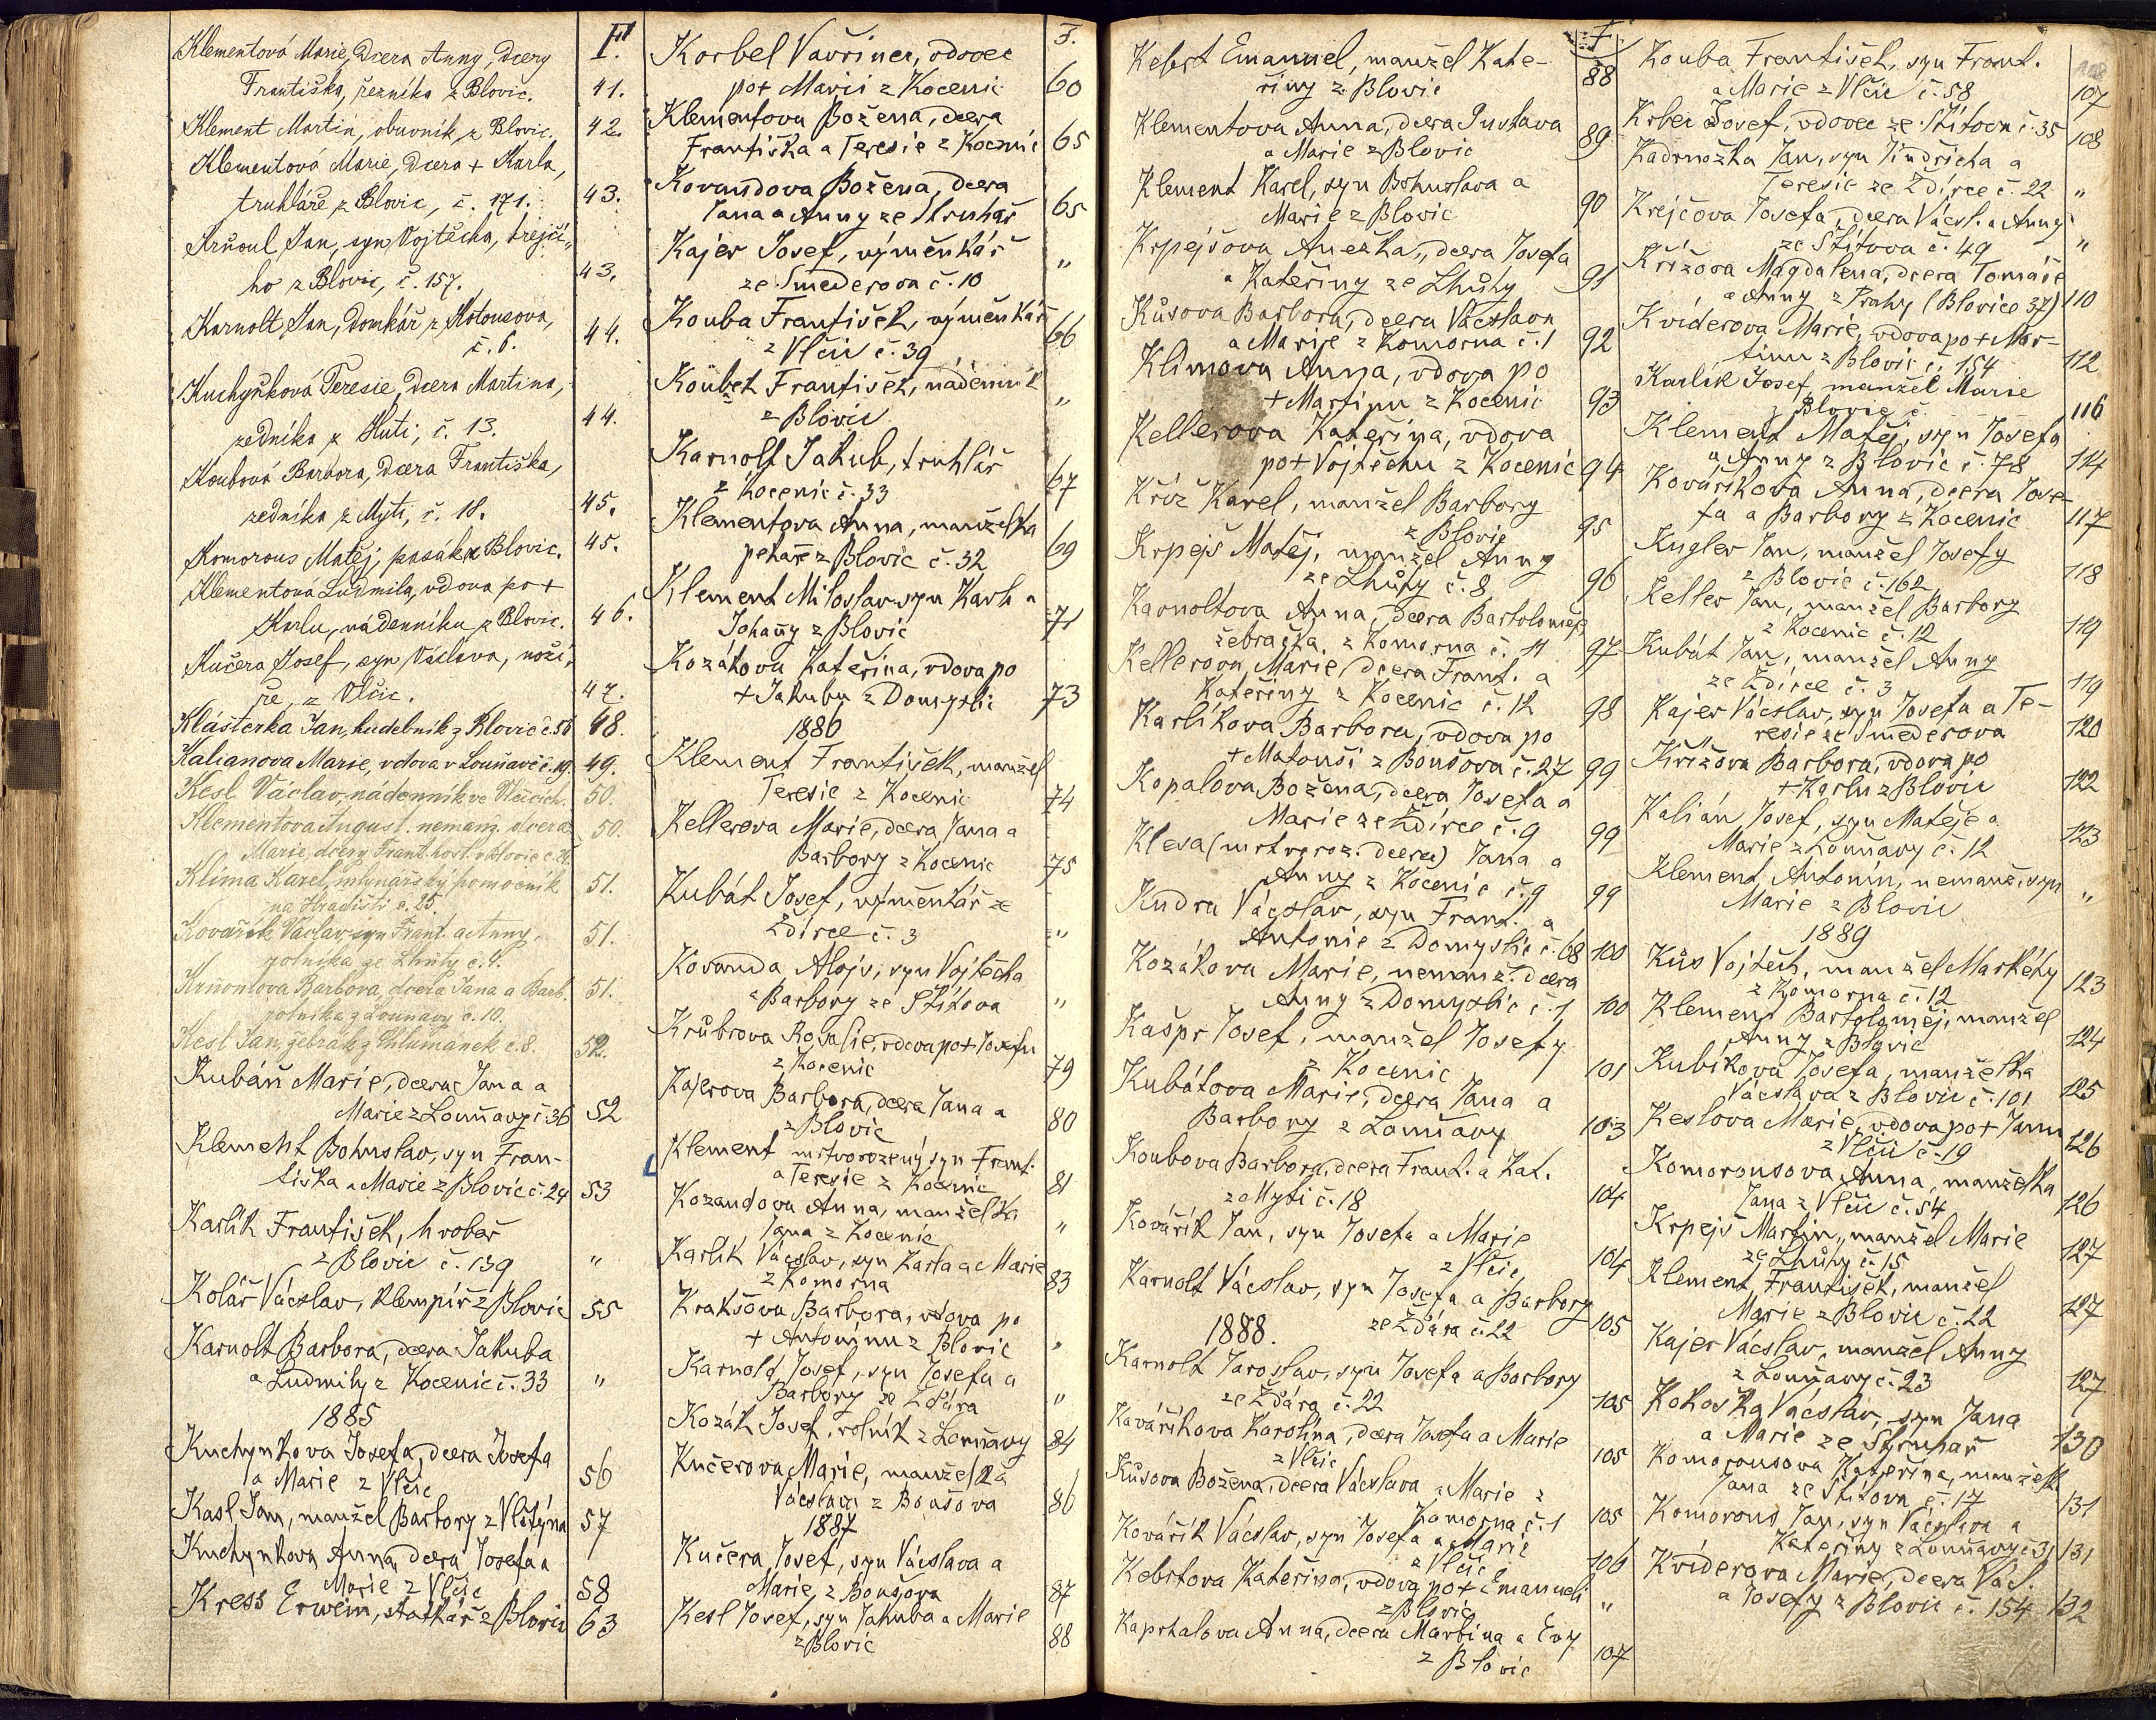 F.
Klementová Marie, dcera Anny, dcery
Františka, řezníka z Blovic. 41.
Klement Martin, obuvník z Blovic. 42.
Klementová Marie, dcera + Karla,
truhláře z Blovic, č. 171. 43.
Jan, syn Vojtěcha, krejčí„
ho z Blovic, č. 157. 43.
Karnolt Jan, domkář z Kotousova,
č. 6. 44.
Kuchyňková Teresie, dcera Martina,
zedníka z Huti, č. 13. 44.
Koubová Barbora, dcera Františka,
zedníka z Mýti, č. 18. 45.
Komorous Matěj, pasák z Blovic. 45.
Klementová Ludmila, vdova po +
Karlu, nádenníku z Blovic. 46.
Kučera Josef, syn Václava, noží„
ře, z Vlčic. 47.
Klášterka Jan, hudebník z Blovic č. 56 48.
Kalianova Marie, vdova v Louňavě č. 19. 49.
Kesl Václav, nádenník ve Vlčicích. 50.
Klementova August. nemanž. dcera 50.
Marie, dcery Frant. host. v Blovic č. 24.
Klima Karel, mlynářský pomocník 51.
na Hradišti č. 25.
Kovářík Václav syn Frant. a Anny, 51.
rolníka ze Lhůty č. 4.
Barbora, dcera Jana a Barb. 51.
rolníka z Louňavy č. 10.
Kesl Jan, žebrák z Chlumánek č. 8. 52.
Kubáň Marie, dcera Jana a
Marie z Louňavy č. 36 52
Klement Bohuslav, syn Fran-
tiška a Marie z Blovic č. 24 53
Karlík František, hrobař
z Blovic č. 139 "
Kolář Václav, klempíř z Blovic 55
Karnolt Barbora, dcera Jakuba
a Ludmily z Kocenic č. 33 "
1885
Kuchynkova Josefa, dcera Josefa
a Marie z Vlčic 56
Kasl Jan, manžel Barbory z Vlčtýna 57
Kuchynkova Anna, dcera Josefa a
Marie z Vlčic 58
Kress Erwein, statkář z Blovic 63
F.
Korbel Vavřinec, vdovec
po + Marii z Kocenic 60
Klementova Božena, dcera
Františka a Teresie z Kocenic 65
Kovandova Božena, dcera
Jana a Anny ze Struhař 65
Kajer Josef, výměnkář
ze Smederova č. 10 "
Kouba František, výměnkář
z Vlčic č. 39 66
Koubek František, nádenník
z Blovic "
Karnolt Jakub, truhlář
z Kocenic č. 33 67
Klementova Anna, manželka
pekaře z Blovic č. 32 69
Klement Miloslav syn Karla a
Johany z Blovic 71
Kozákova Kateřina, vdova po
+ Jakubu z Domyslic 73
1886
Klement František, manžel
Teresie z Kocenic 74
Kellerova Marie, dcera Jana a
Barbory z Kocenic 75
Kubát Josef, výměnkář ze
Ždírce č. 3 "
Kovanda Alojs, syn Vojtěcha
a Barbory ze Štítova "
Krůbrova Rosalie, vdova po + Josefu
z Kocenic 79
Kajerova Barbora, dcera Jana a
z Blovic 80
Klement mrtvorozený syn Frant.
a Teresie z Kocenic 81
Kozandova Anna, manželka
Jana z Kocenic "
Karlík Václav, syn Karla a Marie
z Komorna 83
Krakšova Barbora, vdova po
+ Antonínu z Blovic "
Karnold Josef, syn Josefa a
Barbory ze Ždára "
Kozák Josef, rolník z Louňavy 84
Kučerova Marie, manželka
Václava z Boušova 86
1887
Kučera Josef, syn Václava a
Marie z Boušova 87
Kesl Josef, syn Jakuba a Marie
z Blovic 88
F
Kebrt Emanuel, manžel Kate-
řiny z Blovic 88
Klementova Anna, dcera Gustava
a Marie z Blovic 89
Klement Karel, syn Bohuslava a
Marie z Blovic 90
Krpejšova Anežka, dcera Josefa
a Kateřiny ze Lhůty 91
Kůsova Barbora, dcera Václava
a Marie z Komorna č. 1 92
Klimova Anna, vdova po
+ Martinu z Kocenic 93
Kellerova Kateřina, vdova
po + Vojtěchu z Kocenic 94
Kříž Karel, manžel Barbory
z Blovic 95
Krpejš Matěj, manžel Anny
ze Lhůty č. 8 96
Karnoltova Anna, dcera Bartoloměje
žebračka z Komorna č. 11 97
Kellerova Marie, dcera Frant. a
Kateřiny z Kocenic č. 12 98
Karlíkova Barbora, vdova po
+ Matouši z Boušova č. 27 99
Kopalova Božena, dcera Josefa a
Marie ze Ždírce č. 9 99
Klesa (mrtvoroz. dcera) Jana a
Anny z Kocenic č. 9 99
Kudra Václav, syn Frant. a
Antonie z Domyslic č. 68 100
Kozákova Marie, nemanž. dcera
Anny z Domyslic č. 1 100
Kašpr Josef, manžel Josefy
z Kocenic 101
Kubátova Marie, dcera Jana a
Barbory z Louňavy 103
Koubova Barbora, dcera Frant. a Kat.
z Mýti č. 18 104
Kovářík Jan, syn Josefa a Marie
z Vlčic 104
Karnolt Václav, syn Josefa a Barbory
ze Ždára č. 22 105
1888.
Karnolt Jaroslav, syn Josefa a Barbory
ze Ždára č. 22 105
Kovaříkova Karolina, dcera Josefa a Marie
z Vlčic 105
Kůsova Božena, dcera Václava a Marie z
Komorna č. 1 105
Kovářík Václav, syn Josefa a Marie
z Vlčic 106
Kebrtova Kateřina, vdova po + Emanueli
z Blovic "
Kaprhalova Anna, dcera Martina a Evy
z Blovic 107
Kouba František, syn Frant.
a Marie z Vlčic č. 58 107
Krber Josef, vdovec ze Štítova č. 35 108
Kadrnožka Jan, syn Jindřicha a
Teresie ze Ždírce č. 22 "
Krejčova Josefa, dcera Václ. a Anny
ze Štítova č. 49 "
Křížova Magdalena, dcera Tomáše
a Anny z Prahy (Blovice 37) 110
Kviderova Marie, vdova po + Mar-
tinu z Blovic č. 154 112
Karlík Josef, manžel Marie
z Blovic č. 116
Klement Matěj, syn Josefa
a Anny z Blovic č. 78 114
Kovaříkova Anna, dcera Jose-
fa a Barbory z Kocenic 117
Kugler Jan, manžel Josefy
z Blovic č. 162 118
Keller Jan, manžel Barbory
z Kocenic č. 12 119
Kubát Jan, manžel Anny
ze Ždírce č. 3 119
Kajer Václav, syn Josefa a Te-
resie ze Smederova 120
Křížova Barbora, vdova po
+ Karlu z Blovic 122
Kalián Josef, syn Matěje a
Marie z Louňavy č. 12 123
Klement Antonín, nemanž. syn
Marie z Blovic "
1889
Kůs Vojtěch, manžel Markéty
z Komorna č. 12 123
Klement Bartoloměj, manžel
Anny z Blovic 124
Kubíkova Josefa, manželka
Václava z Blovic č. 101 125
Keslova Marie, vdova po + Janu
z Vlčic č. 19 126
Komorousova Anna, manželka
Jana z Vlčic č. 54 126
Krpejš Martin, manžel Marie
ze Lhůty č. 15 127
Klement František, manžel
Marie z Blovic č. 22 127
Kajer Václav, manžel Anny
z Louňavy č. 23 127
Kokoška Václav, syn Jana
a Marie ze Struhař 130
Komorousova Kateřina, manželk
Jana ze Štítova č. 17 131
Komorous Jan, syn Václava a
Kateřiny z Louňavy č. 31 131
Kviderova Marie, dcera Václ.
a Josefy z Blovic č. 154 132